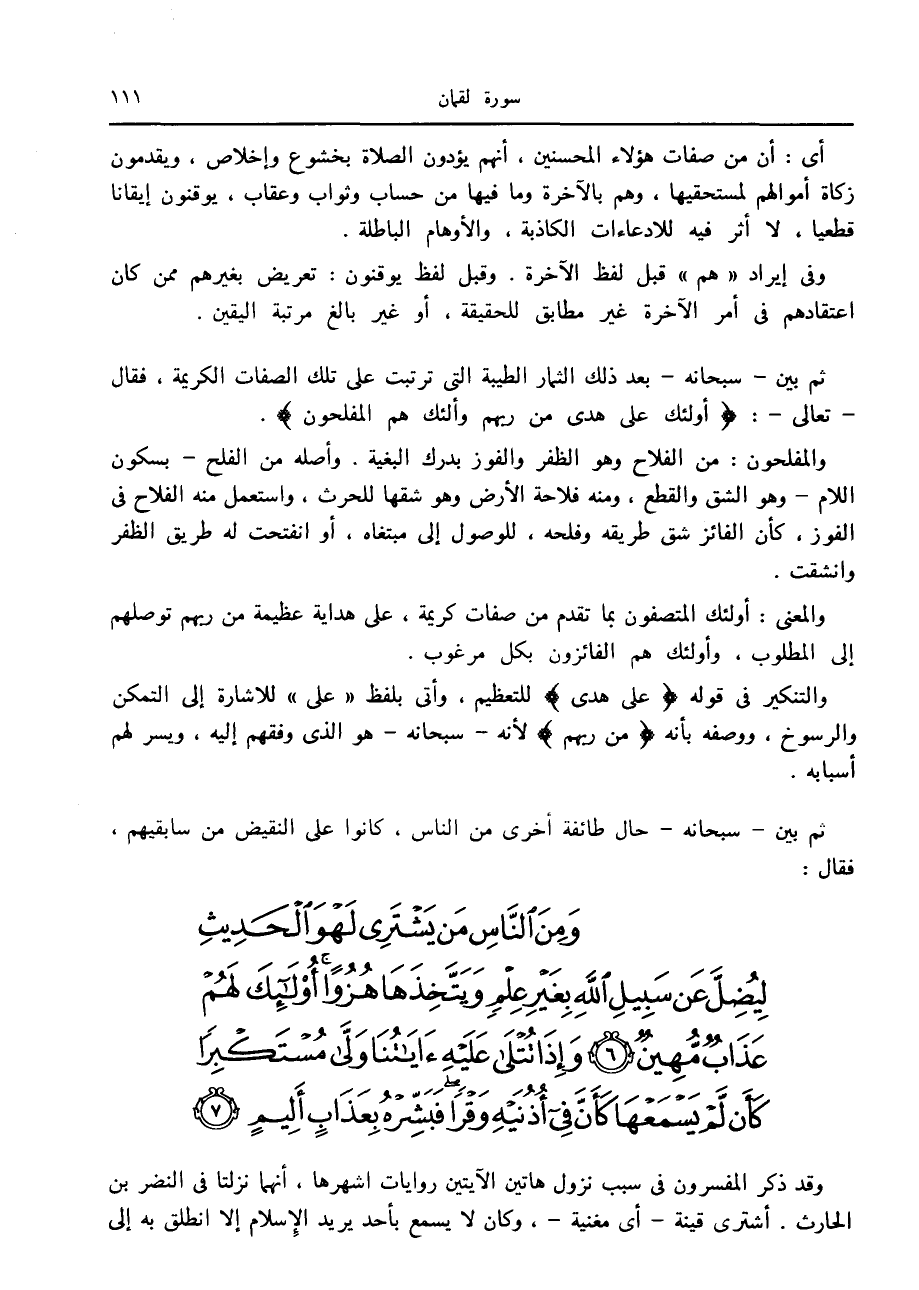 سورة لقمان ١١١
أى : أن من صفات هؤلاء المحسنين ، أنهم يؤدون الصلاة بخشوع وإخلاص ، ويقدمون
زكاة أموالهم لمستحقيها ، وهم بالآخرة وما فيها من حساب وثواب وعقاب ، يوقنون إيقانا
قطعيا ، لا أثر فيه للادعاءات الكاذبة ، والأوهام الباطلة .
وفى إيراد « هم » قبل لفظ الآخرة . وقبل لفظ يوقنون : تعريض بغيرهم ممن كان
اعتقادهم فى أمر الآخرة غير مطابق للحقيقة ، أو غير بالغ مرتبة اليقين .
ثم بين – سبحانه – بعد ذلك الثمار الطيبة التى ترتبت على تلك الصفات الكريمة ، فقال
– تعالى – : ﴿ أولئك على هدى من ربهم وألئك هم المفلحون ﴾ .
والمفلحون : من الفلاح وهو الظفر والفوز بدرك البغية . وأصله من الفلح – بسكون
اللام – وهو الشق والقطع ، ومنه فلاحة الأرض وهو شقها للحرث ، واستعمل منه الفلاح فى
الفوز ، كأن الفائز شق طريقه وفلحه ، للوصول إلى مبتغاه ، أو انفتحت له طريق الظفر
وانشقت .
والمعنى : أولئك المتصفون بما تقدم من صفات كريمة ، على هداية عظيمة من ربهم توصلهم
إلى المطلوب ، وأولئك هم الفائزون بكل مرغوب .
والتنكير فى قوله ﴿ على هدى ﴾ للتعظيم ، وأتى بلفظ « على » للاشارة إلى التمكن
والرسوخ ، ووصفه بأنه ﴿ من ربهم ﴾ لأنه – سبحانه – هو الذى وفقهم إليه ، ويسر لهم
أسبابه .
ثم بين – سبحانه – حال طائفة أخرى من الناس ، كانوا على النقيض من سابقيهم ،
فقال :
وَمِنَ ٱلنَّاسِ مَن يَشْتَرِى لَهْوَ ٱلْحَدِيثِ
لِيُضِلَّ عَن سَبِيلِ ٱللَّهِ بِغَيْرِ عِلْمٍ وَيَتَّخِذَهَا هُزُوًا ۚ أُوْلَٰٓئِكَ لَهُمْ
عَذَابٌ مُّهِينٌ ٦ وَإِذَا تُتْلَىٰ عَلَيْهِ ءَايَٰتُنَا وَلَّىٰ مُسْتَكْبِرًا
كَأَن لَّمْ يَسْمَعْهَا كَأَنَّ فِىٓ أُذُنَيْهِ وَقْرًا ۖ فَبَشِّرْهُ بِعَذَابٍ أَلِيمٍ ٧
وقد ذكر المفسرون فى سبب نزول هاتين الآيتين روايات اشهرها ، أنهما نزلتا فى النضر بن
الحارث . أشترى قينة – أى مغنية – ، وكان لا يسمع بأحد يريد الإسلام إلا انطلق به إلى